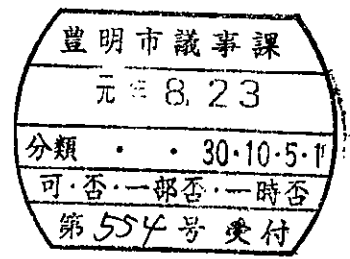 豊明市議事課
元 8. 23
分類 ・ ・ 30・10・5・1
可・否・一部否・一時否
第554号 受付